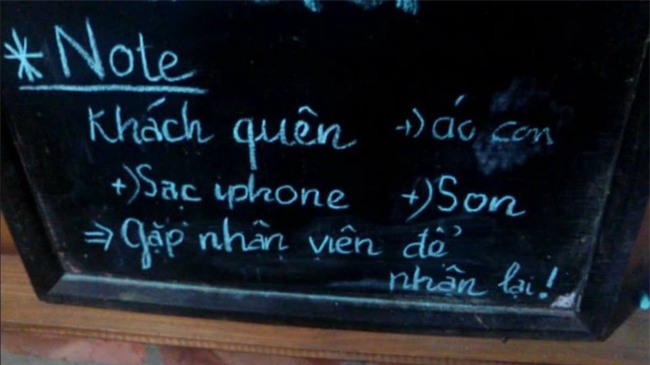 * Note
Khách quên +) áo con
+) Sạc iphone +) Son
⇒ Gặp nhân viên để
nhận lại!